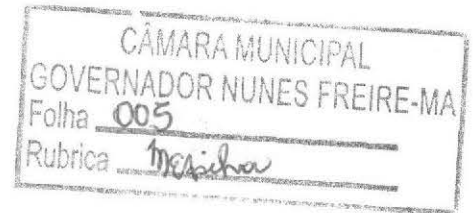 CÂMARA MUNICIPAL
GOVERNADOR NUNES FREIRE-MA
Folha 005
Rubrica